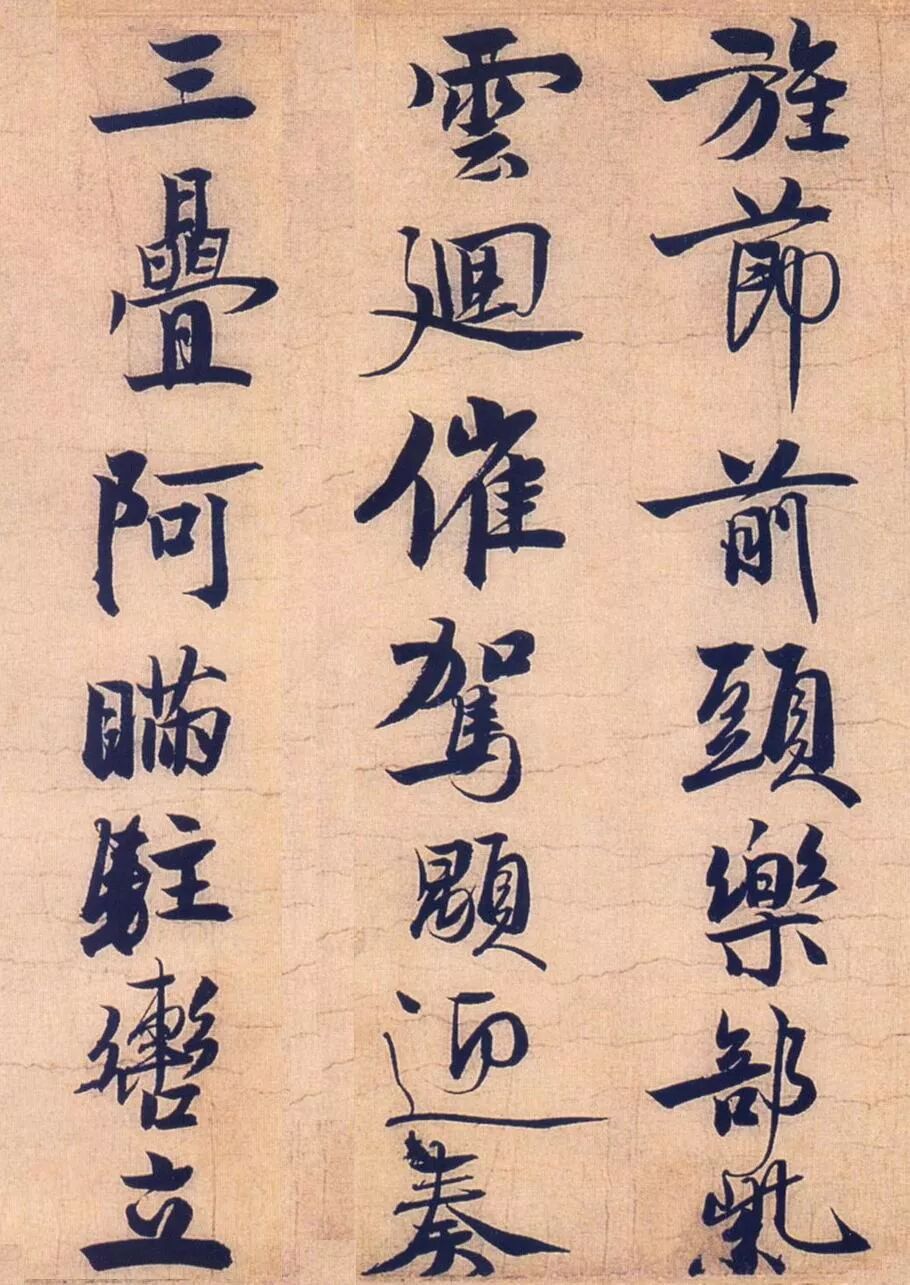 旌節前頭樂部紫
雲迴催駕顋迎奏
三疊阿瞞駐轡立